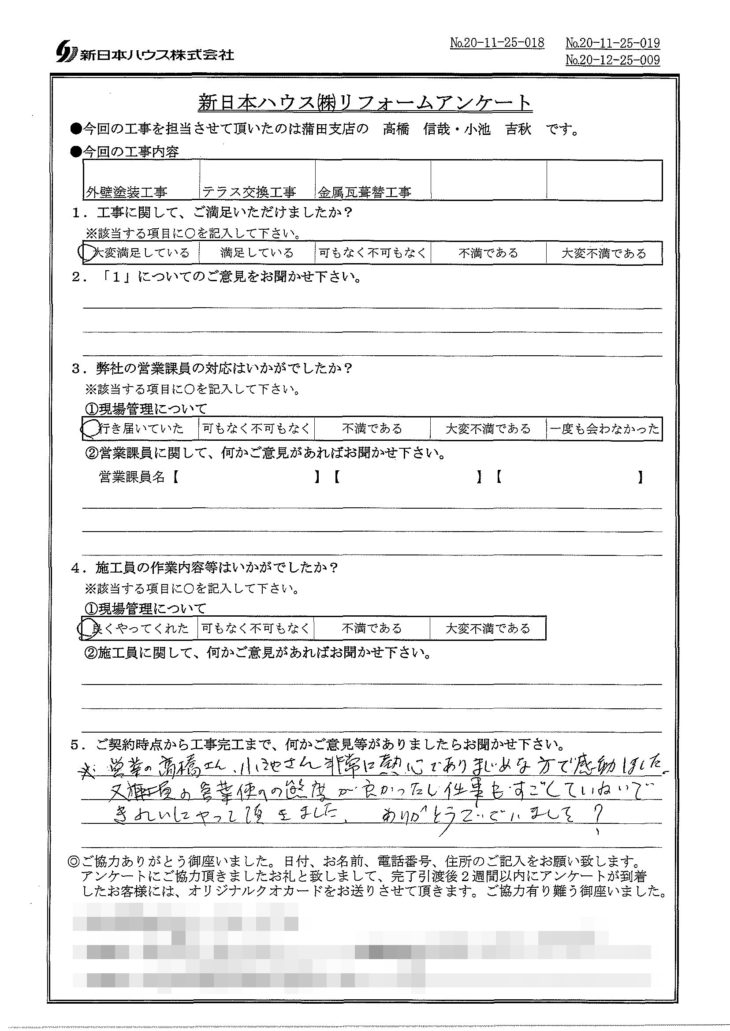 新日本ハウス株式会社
№20-11-25-018 №20-11-25-019
№20-12-25-009
新日本ハウス㈱リフォームアンケート
●今回の工事を担当させて頂いたのは蒲田支店の 高橋 信哉・小池 吉秋 です。
●今回の工事内容
外壁塗装工事 テラス交換工事 金属瓦葺替工事
1．工事に関して、ご満足いただけましたか？
※該当する項目に○を記入して下さい。
大変満足している 満足している 可もなく不可もなく 不満である 大変不満である
2．「1」についてのご意見をお聞かせ下さい。
3．弊社の営業課員の対応はいかがでしたか？
※該当する項目に○を記入して下さい。
①現場管理について
行き届いていた 可もなく不可もなく 不満である 大変不満である 一度も会わなかった
②営業課員に関して、何かご意見があればお聞かせ下さい。
営業課員名【 】【 】【 】
4．施工員の作業内容等はいかがでしたか？
※該当する項目に○を記入して下さい。
①現場管理について
良くやってくれた 可もなく不可もなく 不満である 大変不満である
②施工員に関して、何かご意見があればお聞かせ下さい。
5．ご契約時点から工事完工まで、何かご意見等がありましたらお聞かせ下さい。
※ 営業の高橋さん、小池さん非常に熱心でありまじめな方で感動しました。
又 の言葉使いの態度が良かったし仕事もすごくていねいで
きれいにやって頂きました、ありがとうございました
◎ご協力ありがとう御座いました。日付、お名前、電話番号、住所のご記入をお願い致します。
アンケートにご協力頂きましたお礼と致しまして、完了引渡後２週間以内にアンケートが到着
したお客様には、オリジナルクオカードをお送りさせて頂きます。ご協力有り難う御座いました。